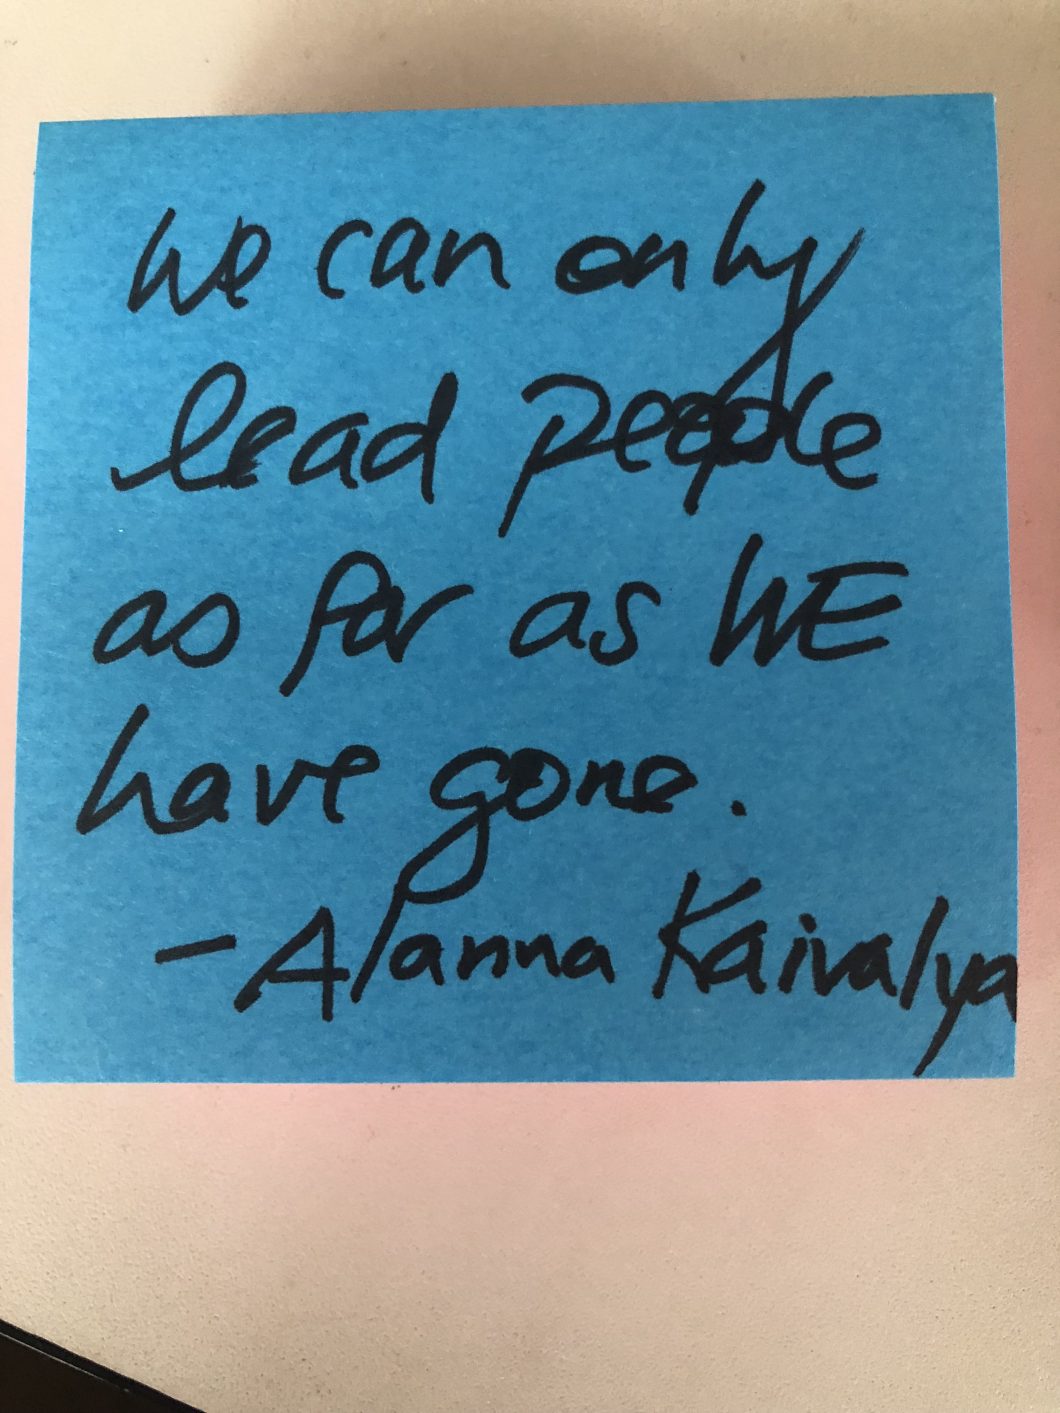 We can only
lead people
as far as WE
have gone.
- Alanna Kaivalya